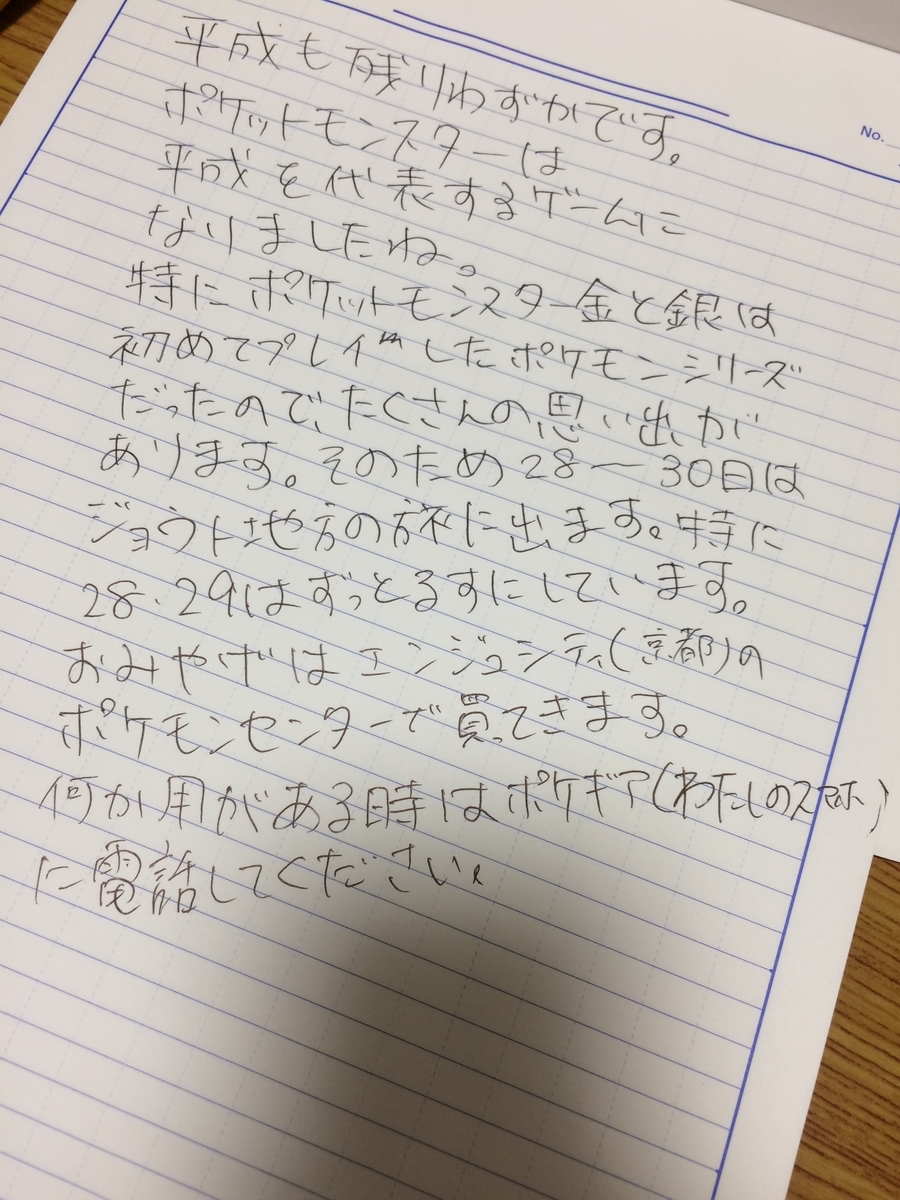 No.
平成も残りわずかです。
ポケットモンスターは
平成を代表するゲームに
なりましたね。
特にポケットモンスター金と銀は
初めてプレイしたポケモンシリーズ
だったので、たくさんの思い出が
あります。そのため28〜30日は
ジョウト地方の旅に出ます。特に
28、29はずっとるすにしています。
おみやげはエンジュシティ(京都)の
ポケモンセンターで買ってきます。
何か用がある時はポケギア(わたしのスマホ)
に電話してください。